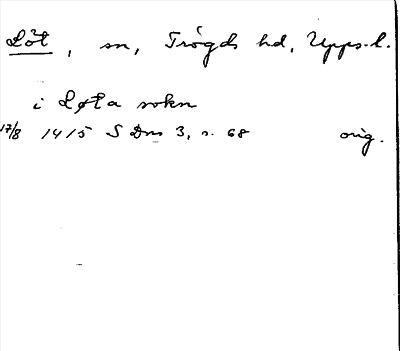 Löt, sn, Trögds hd, Upps. l.
i Løta sokn
17/8 1415 S Dns 3, s. 68 orig.